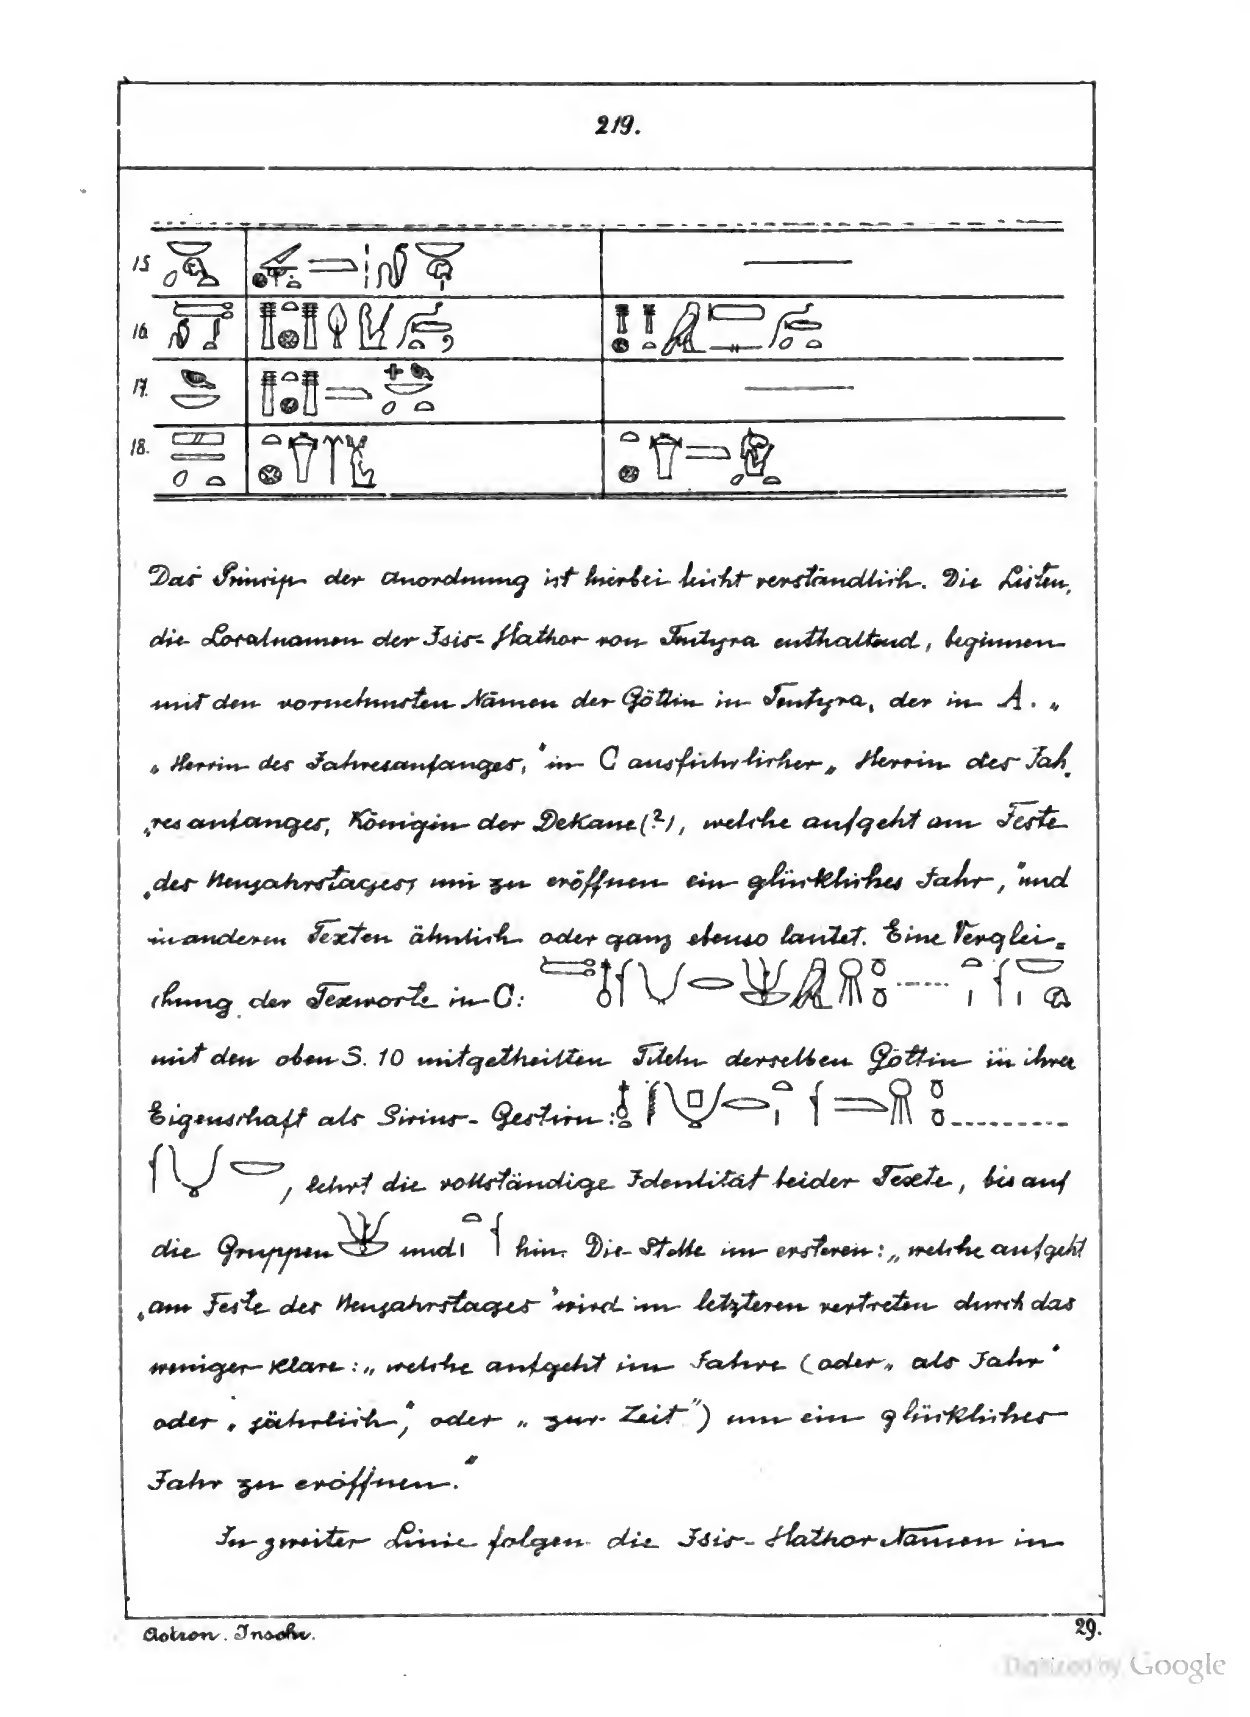 219.
15.
16.
17.
18.
Das Princip der Anordnung ist hierbei leicht verständlich. Die Listen,
die Localnamen der Isis-Hathor von Tentyra enthaltend, beginnen
mit den vornehmsten Namen der Göttin in Tentyra, der in A. „
„Herrin des Jahresanfanges," in C ausführlicher „Herrin des Jah„
„resanfanges, Königin der Dekane(?), welche aufgeht am Feste
„des Neujahrstages, um zu eröffnen ein glückliches Jahr," und
in anderen Texten ähnlich oder ganz ebenso lautet. Eine Verglei=
chung der Texworte in C:
mit den oben S. 10 mitgetheilten Titeln derselben Göttin in ihrer
Eigenschaft als Sirius-Gestirn:
, lehrt die vollständige Identität beider Texte, bis auf
die Gruppen und hin. Die Stelle im ersteren: „welche aufgeht
„am Feste des Neujahrstages" wird im letzteren vertreten durch das
weniger klare: „welche aufgeht im Jahre (oder „als Jahr"
oder „jährlich," oder „zur Zeit") um ein glückliches
Jahr zu eröffnen."
In zweiter Linie folgen die Isis-Hathor Namen in
Astron. Inschr. 29.
Digitized by Google